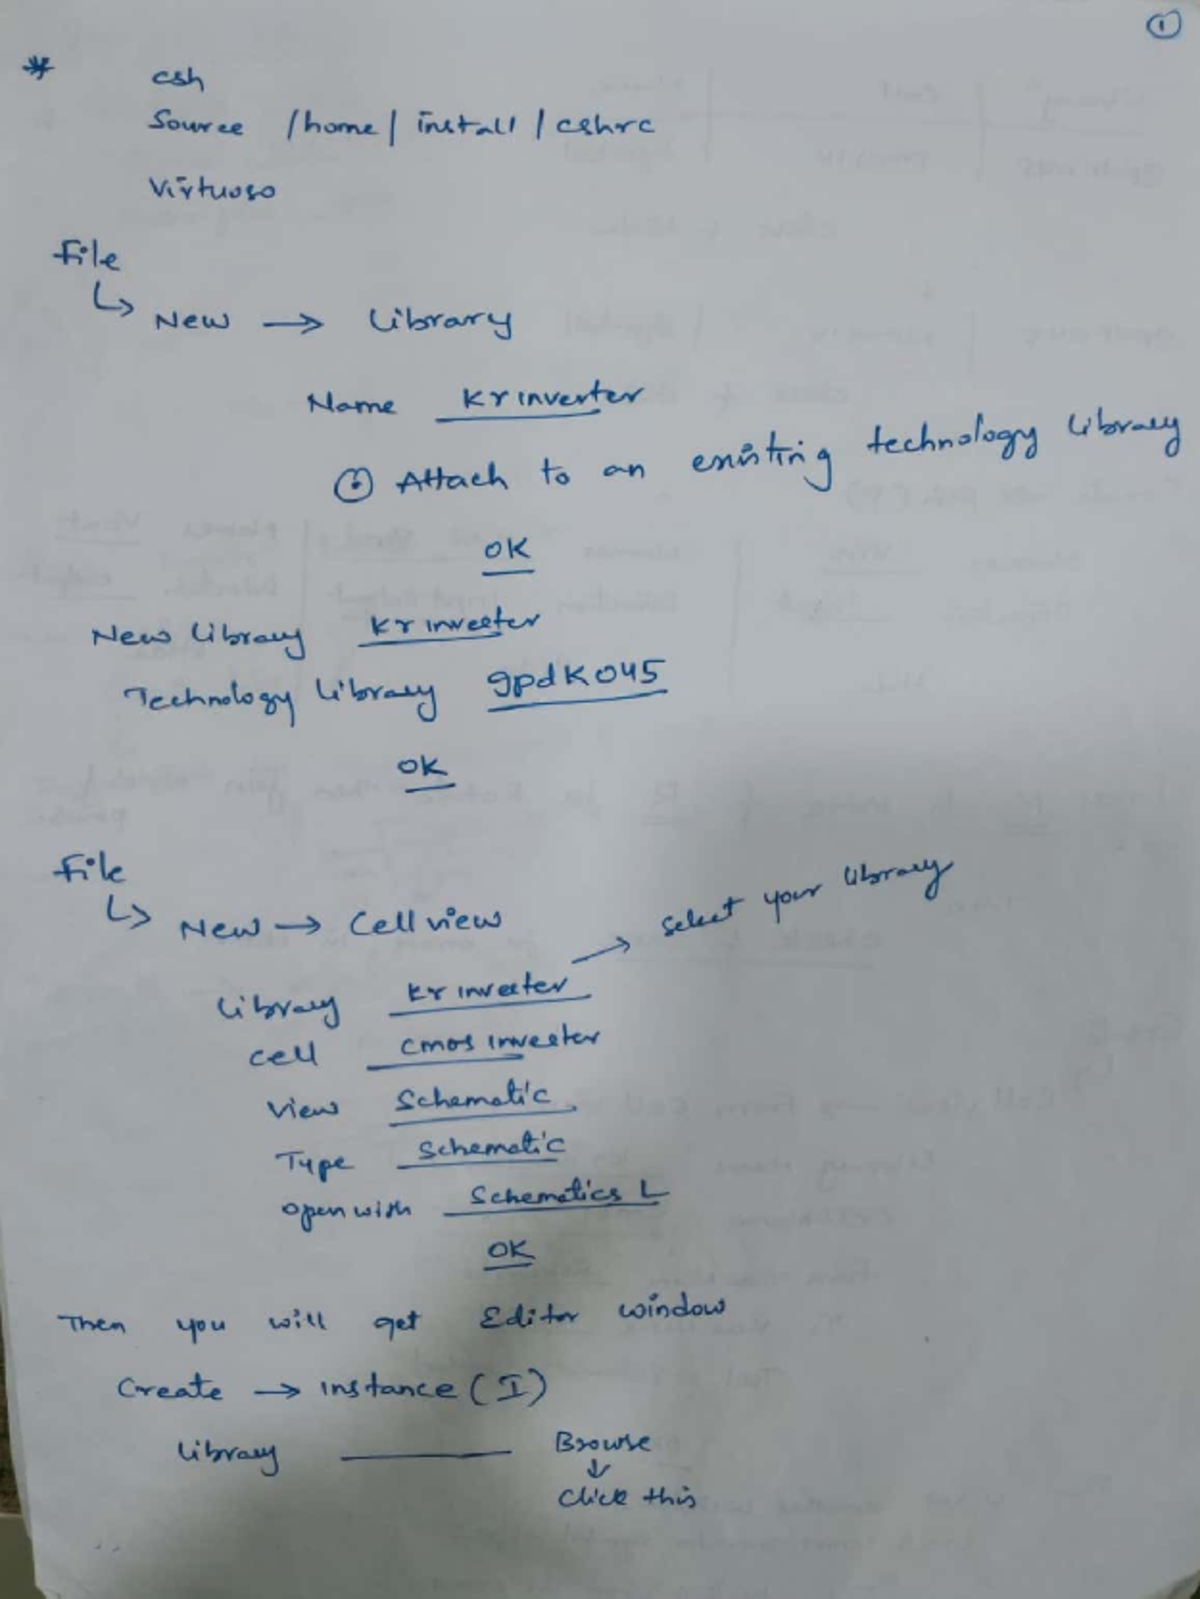 ①
* csh
Source /home/install/cshrc
Virtuoso
File
↳ New → Library
Name Kr inverter
⊙ Attach to an existing technology library
OK
New library Kr inverter
Technology library gpdk045
OK
File
↳ New → Cell view
→ select your library
Library Kr inverter
Cell cmos inverter
View Schematic
Type Schematic
open with Schematics L
OK
Then you will get Editor window
Create → instance (I)
library ______ Browse
↓
click this